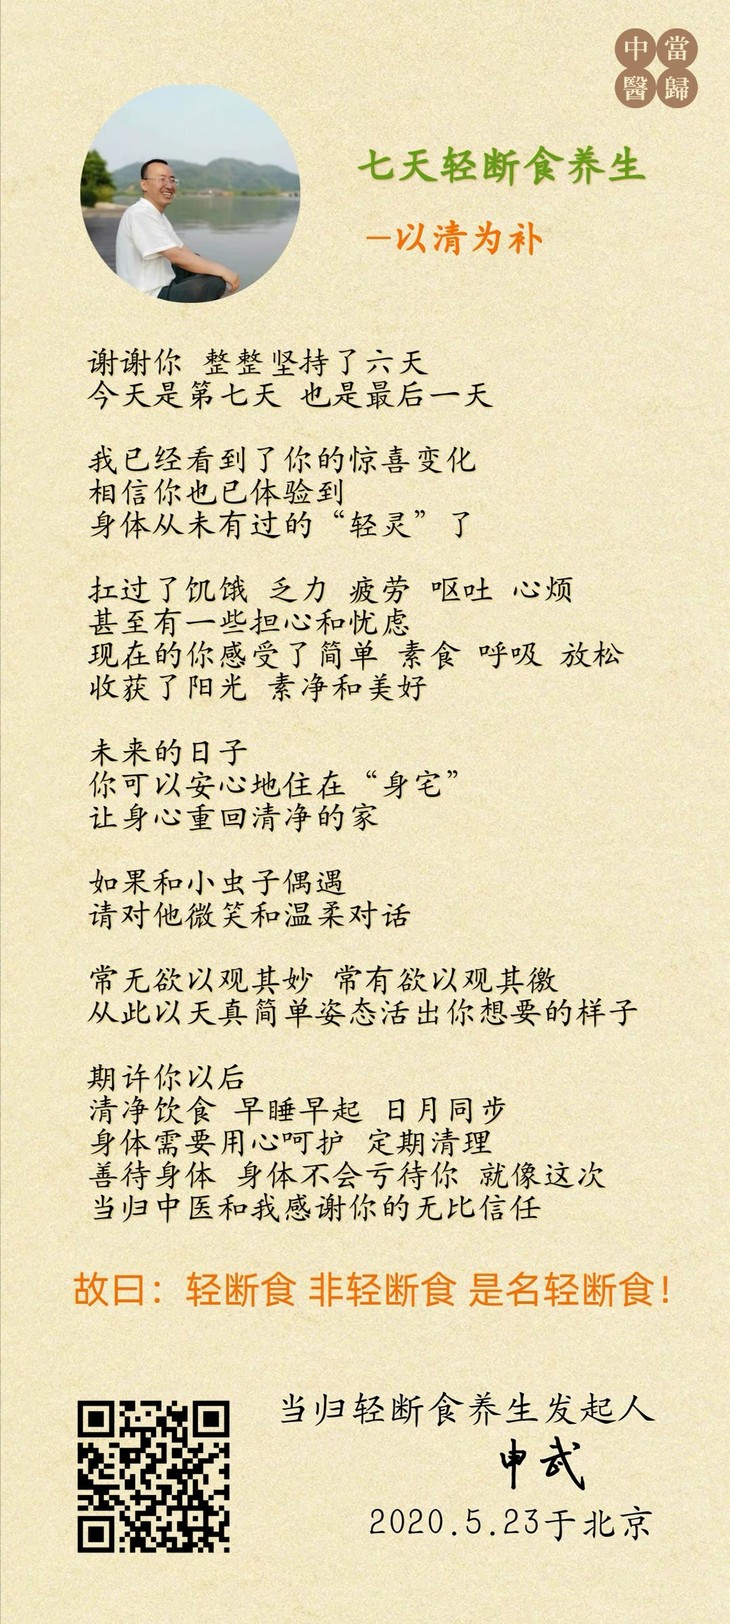 當歸
中醫
七天轻断食养生
—以清为补
谢谢你 整整坚持了六天
今天是第七天 也是最后一天
我已经看到了你的惊喜变化
相信你也已体验到
身体从未有过的“轻灵”了
扛过了饥饿 乏力 疲劳 呕吐 心烦
甚至有一些担心和忧虑
现在的你感受了简单 素食 呼吸 放松
收获了阳光 素净和美好
未来的日子
你可以安心地住在“身宅”
让身心重回清净的家
如果和小虫子偶遇
请对他微笑和温柔对话
常无欲以观其妙 常有欲以观其徼
从此以天真简单姿态活出你想要的样子
期许你以后
清净饮食 早睡早起 日月同步
身体需要用心呵护 定期清理
善待身体 身体不会亏待你 就像这次
当归中医和我感谢你的无比信任
故曰：轻断食 非轻断食 是名轻断食！
当归轻断食养生发起人
申武
2020.5.23于北京